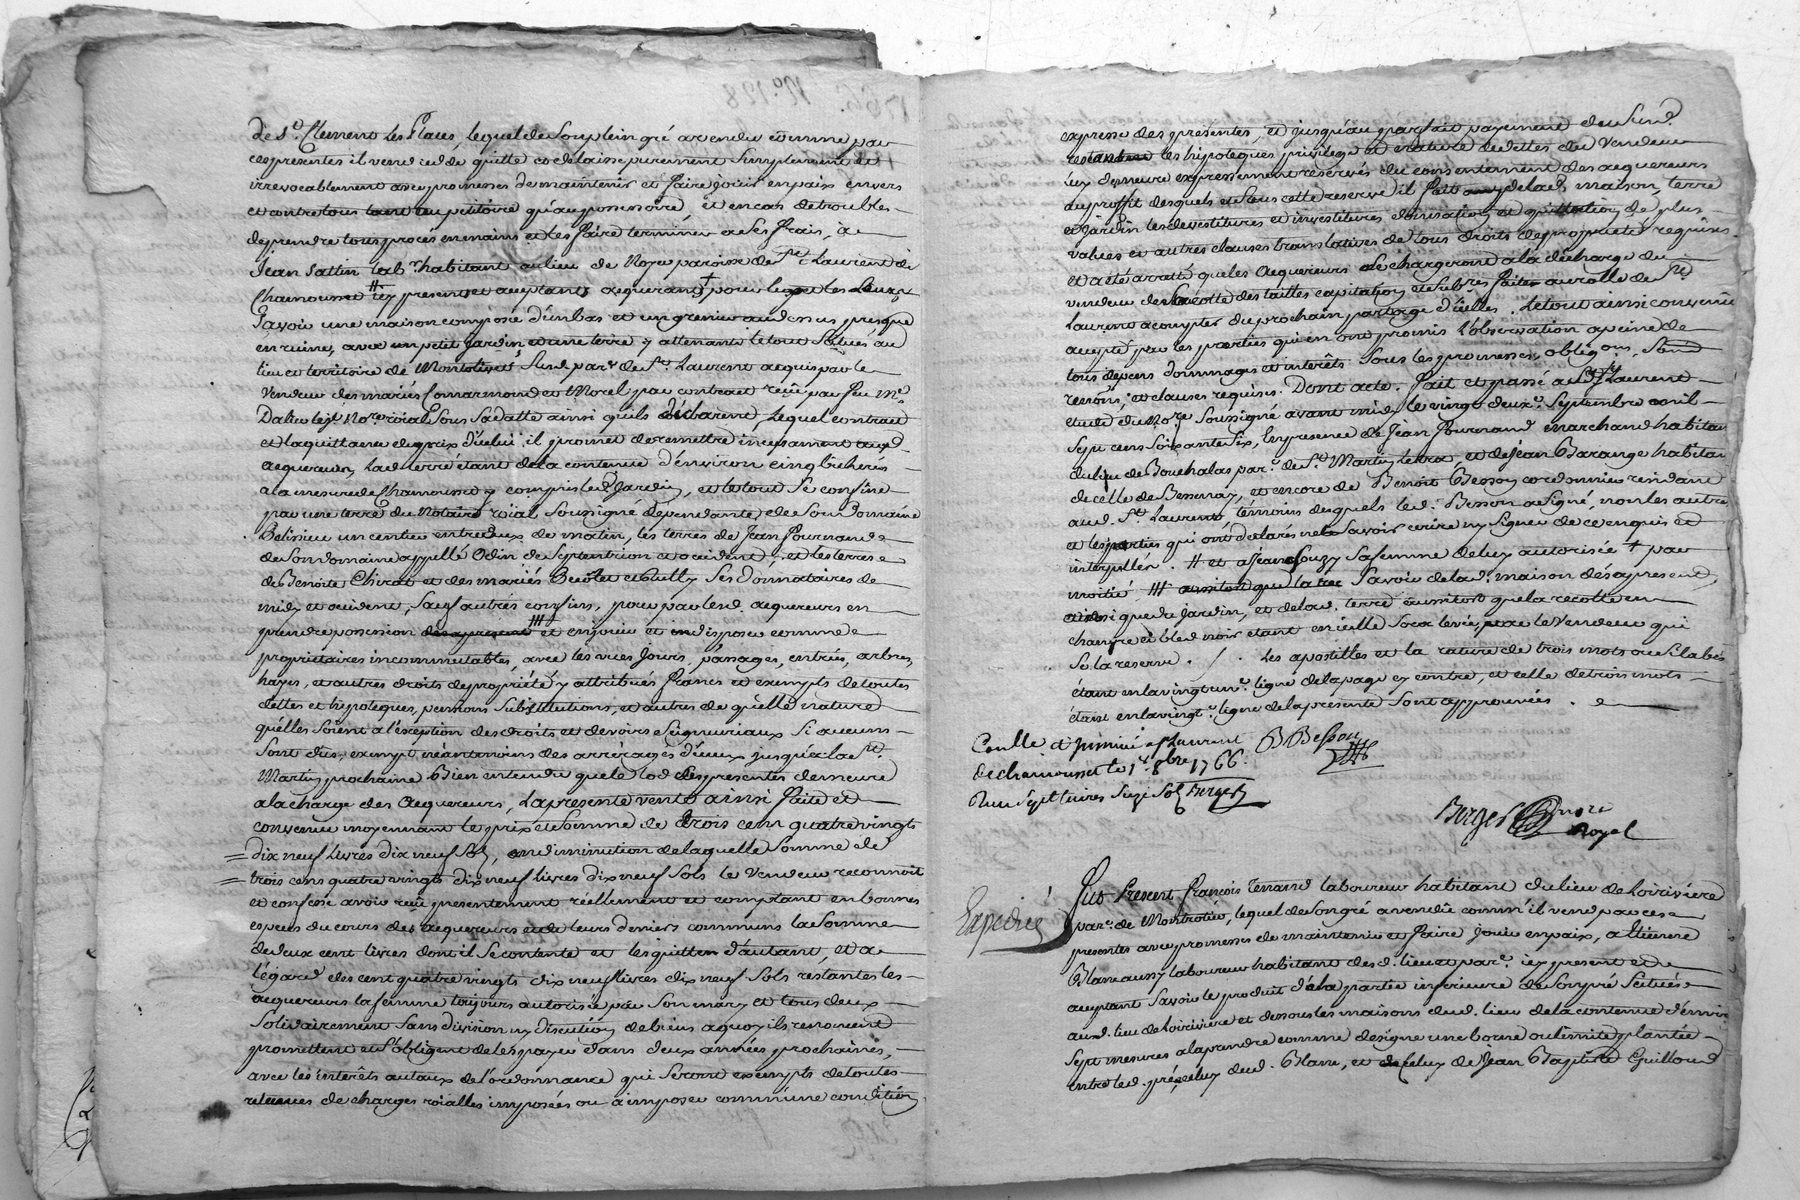 de St. Clement les Places, lequel de son plein gré a vendu comme par
ces presentes il vend cedde quitte et delaisse purement simplement et
irrevocablement avec promesses de maintenir et faire jouir en paix envers
et contre tous tant au petitoire qu'au possessoire, et en cas de troubles
de prendre tous procés en mains et les faire terminer a ses frais, a
Jean Sattin lab.r habitant au lieu de Noyer paroisse de St. Laurent de
Chamousset # icy present et acceptant acquerant † pour
Savoir une maison composée d'un bas et un grenier au dessus presque
en ruine, avec un petit jardin et une terre y attenants le tout situés au
lieu et territoire de Montolivet susd. par.e de St. Laurent acquis par le
Vendeur des mariés Comarmond et Morel par contract reçu par feu Me.
Dalieu lejt. No.re roial sous sa datte ainsi qu'ils declarent, lequel contract
et la quittance du prix d'icelui il promet de remettre incessament auxd.
acquereurs, lad. terre étant de la contenue d'environ cinq bicherés
a la mesure de Chamousset y compris led. jardin, et le tout se confine
par une terre du Notaire roial soussigné dependante de son domaine
Belissieu un centier entre deux de matin, les terres de Jean Fournand
de son domaine appellé Odin de septentrion et occident, et les terres
de Benoite Chirat et des mariés ses donnataires de
midy et occident, sauf autres confins, pour par lesd. acquereurs en
prendre possession des a present ### et en jouir et en disposer comme
propriétaires incommutables, avec les vues jours, passages, entrées, arbres,
hayes, et autres droits de propriété y attribués francs et exempts de toutes
dettes et hypoteques, pensions substitutions, et autres de qu'elle nature
qu'elles soient a l'exception des droits et devoirs seigneuriaux si aucuns
sont dus, exempt néantmoins des arrérages d'iceux jusqu'a la St.
Martin prochaine bien entendu que le lod des presentes demeure
a la charge des acquereurs, la presente vente ainsi faite et
convenue moyennant le prix et somme de trois cent quatre vingts
dix neuf livres dix neuf sols, en diminution de laquelle somme de
trois cens quatre vingts dix neuf livres dix neuf sols le vendeur reconnoit
et confesse avoir reçu presentement réellement et comptant en bonnes
especes du cours des acquereurs et de leurs deniers communs la somme
de deux cent livres dont il se contente et les quitte d'autant, et a
l'égard des cent quatre vingts dix neuf livres dix neuf sols restantes les
acquereurs la femme toujours autorisée par son mary et tous deux
solidairement sans division ny discution de biens a quoy ils renoncent
promettent et s'obligent de les payer dans deux années prochaines,
avec les interêts au taux de l'ordonnance qui seront exempts de toutes
retenues de charges roialles imposées ou a imposer comme une condition
expresse des presentes, et jusqu'au parfait payement dud.
restant les hipoteques privilege et nature de dettes du vendeur
icy demeure expressement reservés du consentement des acquereurs
au profit desquels et sous cette reserve il fait de lad. maison, terre
et jardin les devestitures et investitures de plus
values et autres clauses translatives de tous droits de proprieté requises
et a été arrêté que les acquereurs se chargeront a la décharge du
vendeur de la cotte des tailles capitation et faites au rolle de St.
Laurent a compter du prochain partage d'icelles. Le tout ainsi convenu
accepté par les parties qui en ont promis l'observation a peine de
tous depens dommages et interêts sous les promesses, oblig.ons,
renons. et clauses requises. Dont acte. Fait et passé aud. St. Laurent
etude du No.re soussigné avant midy le vingt deux.e septembre mil
sept cens soixante six, en presence de Jean Fournand marchand habitan
du lieu de Bouchalas par.e de St. Martin et de Jean Barange habitan
de celle de Bessenay, et encore de Benoit Besson cordonnier residant
aud. St. Laurent, témoins desquels led. Besson a signé, non les autres
et les parties qui ont declarés ne le savoir ecrire ny signer de ce enquis et
interpellés. # et a Jeane Souzy sa femme de luy autorisée † par
moitié ### aussitost que la rec Savoir de lad. maison dés a present,
ainsi que du jardin, et de lad. terre aussitost que la recolte en
chanvre et bled noir etant en icelle sera levée, le vendeur qui
se la reserve. /. Les apostilles et la rature de trois mots ou silabes
étant en la vingt un.e ligne de la page cy contre, et celle de trois mots
étant en la vingt.e ligne de la presente sont approuvées.
Conlle. et Jnsinué a St Laurent
de chamousset le 1er 8bre 1766.
Reçu sept livres seize sols Berger
B Besson
Berger no.re
Royal
Expedié
Fut Present François Tenand laboureur habitant du lieu de Loirivière
par.e de Montrotier, lequel de son gré a vendu comm'il vend par ces
presentes avec promesses de maintenir et faire jouir en paix, a Etienne
Blanc aussy laboureur habitant des d. lieu et par.e icy present et
acceptant Savoir le produit d'une partie inferieure de son pré scitué
aud. lieu de Loirivière et dessous les maisons dud. lieu de la contenue d'environ
sept mesures a la prendre comme designe une borne ou limite plantée
entre led. pré, celuy dud. Blanc, et de celuy de Jean Baptiste Guilloud